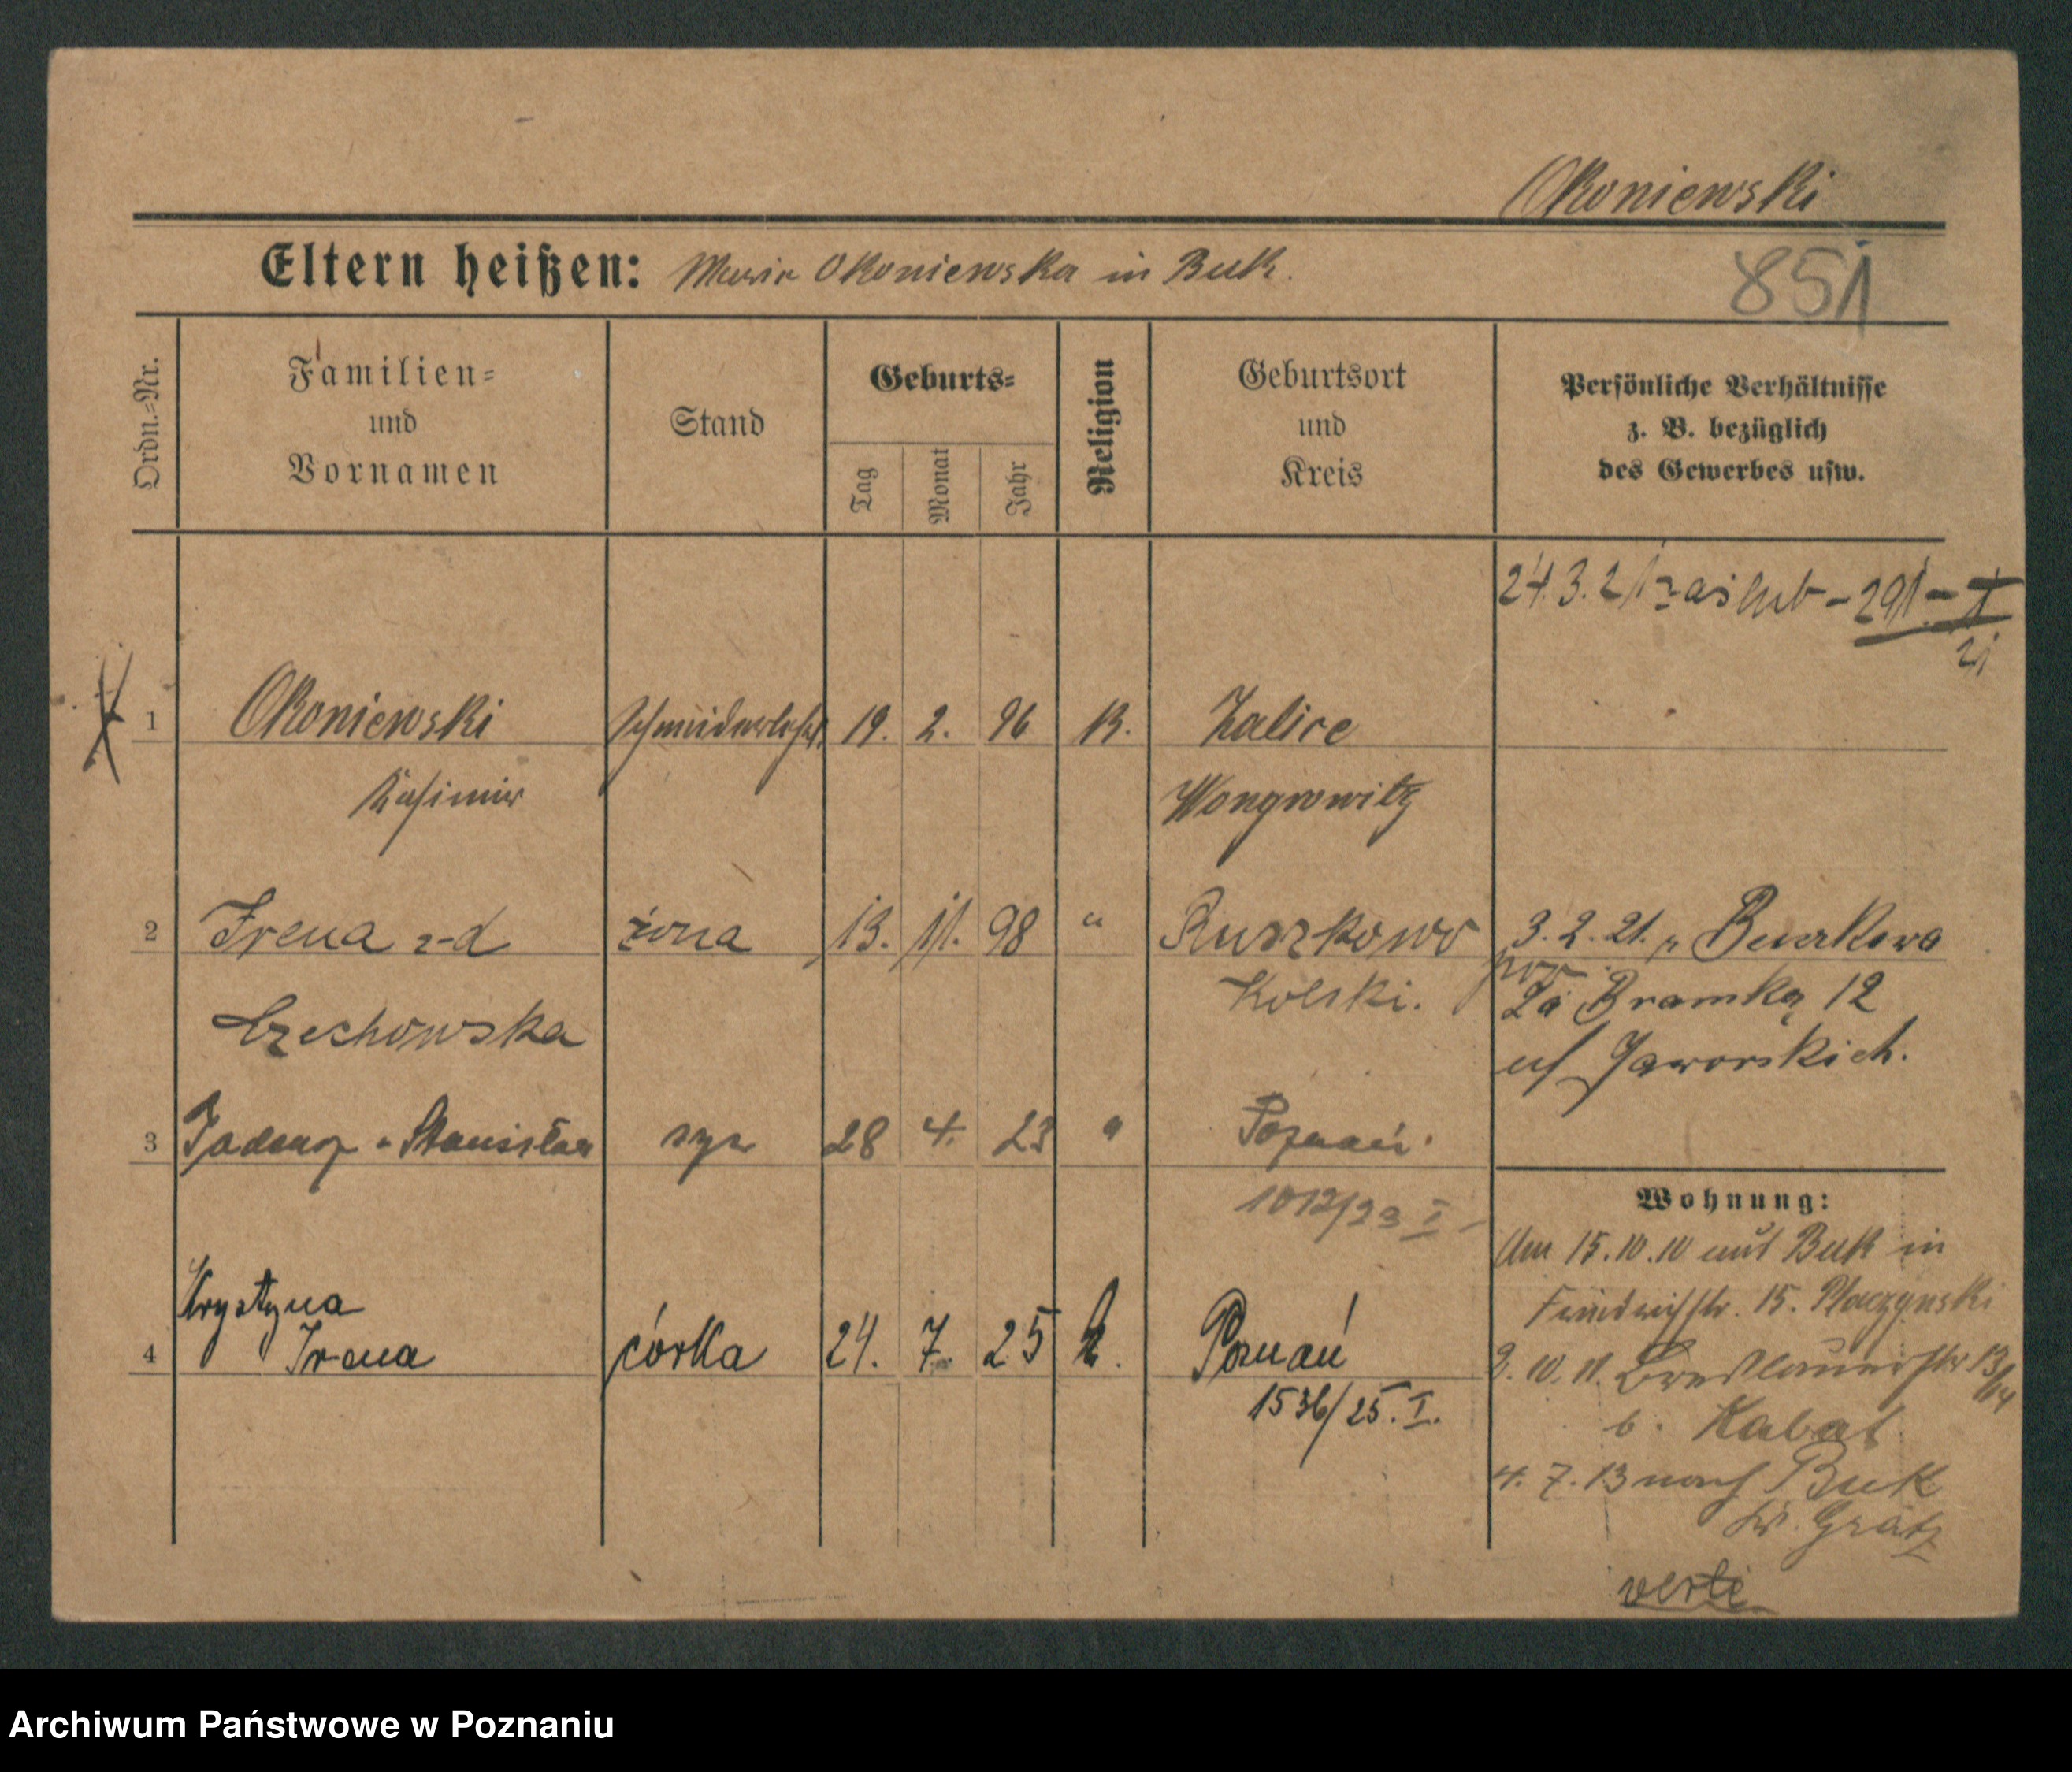 Okoniewski
Eltern heißen: Maria Okoniewska in Buk.
851
Ordn.=Nr.
Familien=
und
Vornamen
Stand
Geburts=
Tag
Monat
Jahr
Religion
Geburtsort
und
Kreis
Persönliche Verhältnisse
z. B. bezüglich
des Gewerbes usw.
24.3.21 zaślub - 291 - I
21
1 Okoniewski Schneiderlehrl. 19. 2. 96 K. Zalice
Kasimir Wongrowitz
2 Irena z-d żona 13. 11. 98 " Ruszkowo 3. 2. 21.
Czechowska Kolski. Za Bramką 12
u/ Jaworskich.
3 Tadeusz - Stanisław syn 28 4. 23 " Poznań.
1012/23 I
Wohnung:
Am 15.10.10 aus Buk in
Friedrichstr. 15. Płaczynski
Krystyna
4 Irena córka 24. 7. 25 k. Poznań
1536/25. I.
2. 10. 11. Breslauerstr 13/14
b. Kabat
4. 7. 13 nach Buk
Kr. Grätz
verte
Archiwum Państwowe w Poznaniu